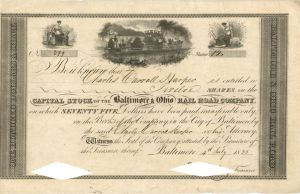 Be it known that Charles Carroll Harper is entitled to
Twelve SHARES in the
CAPITAL STOCK OF THE Baltimore & Ohio RAIL ROAD COMPANY,
on which SEVENTY FIVE Dollars have been paid, transferable only
on the Books of the Company in the City of Baltimore, by
the said Charles Carroll Harper or his Attorney
Witness the Seal of the Company attested by the Signature of
the Treasurer thereof Baltimore 4th July
Treasurer